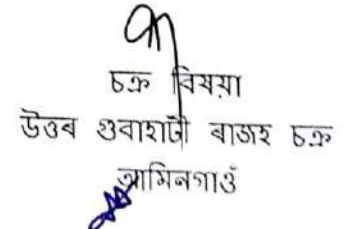 চক্ৰ বিষয়া
উত্তৰ গুৱাহাটী ৰাজহ চক্ৰ
আমিনগাওঁ